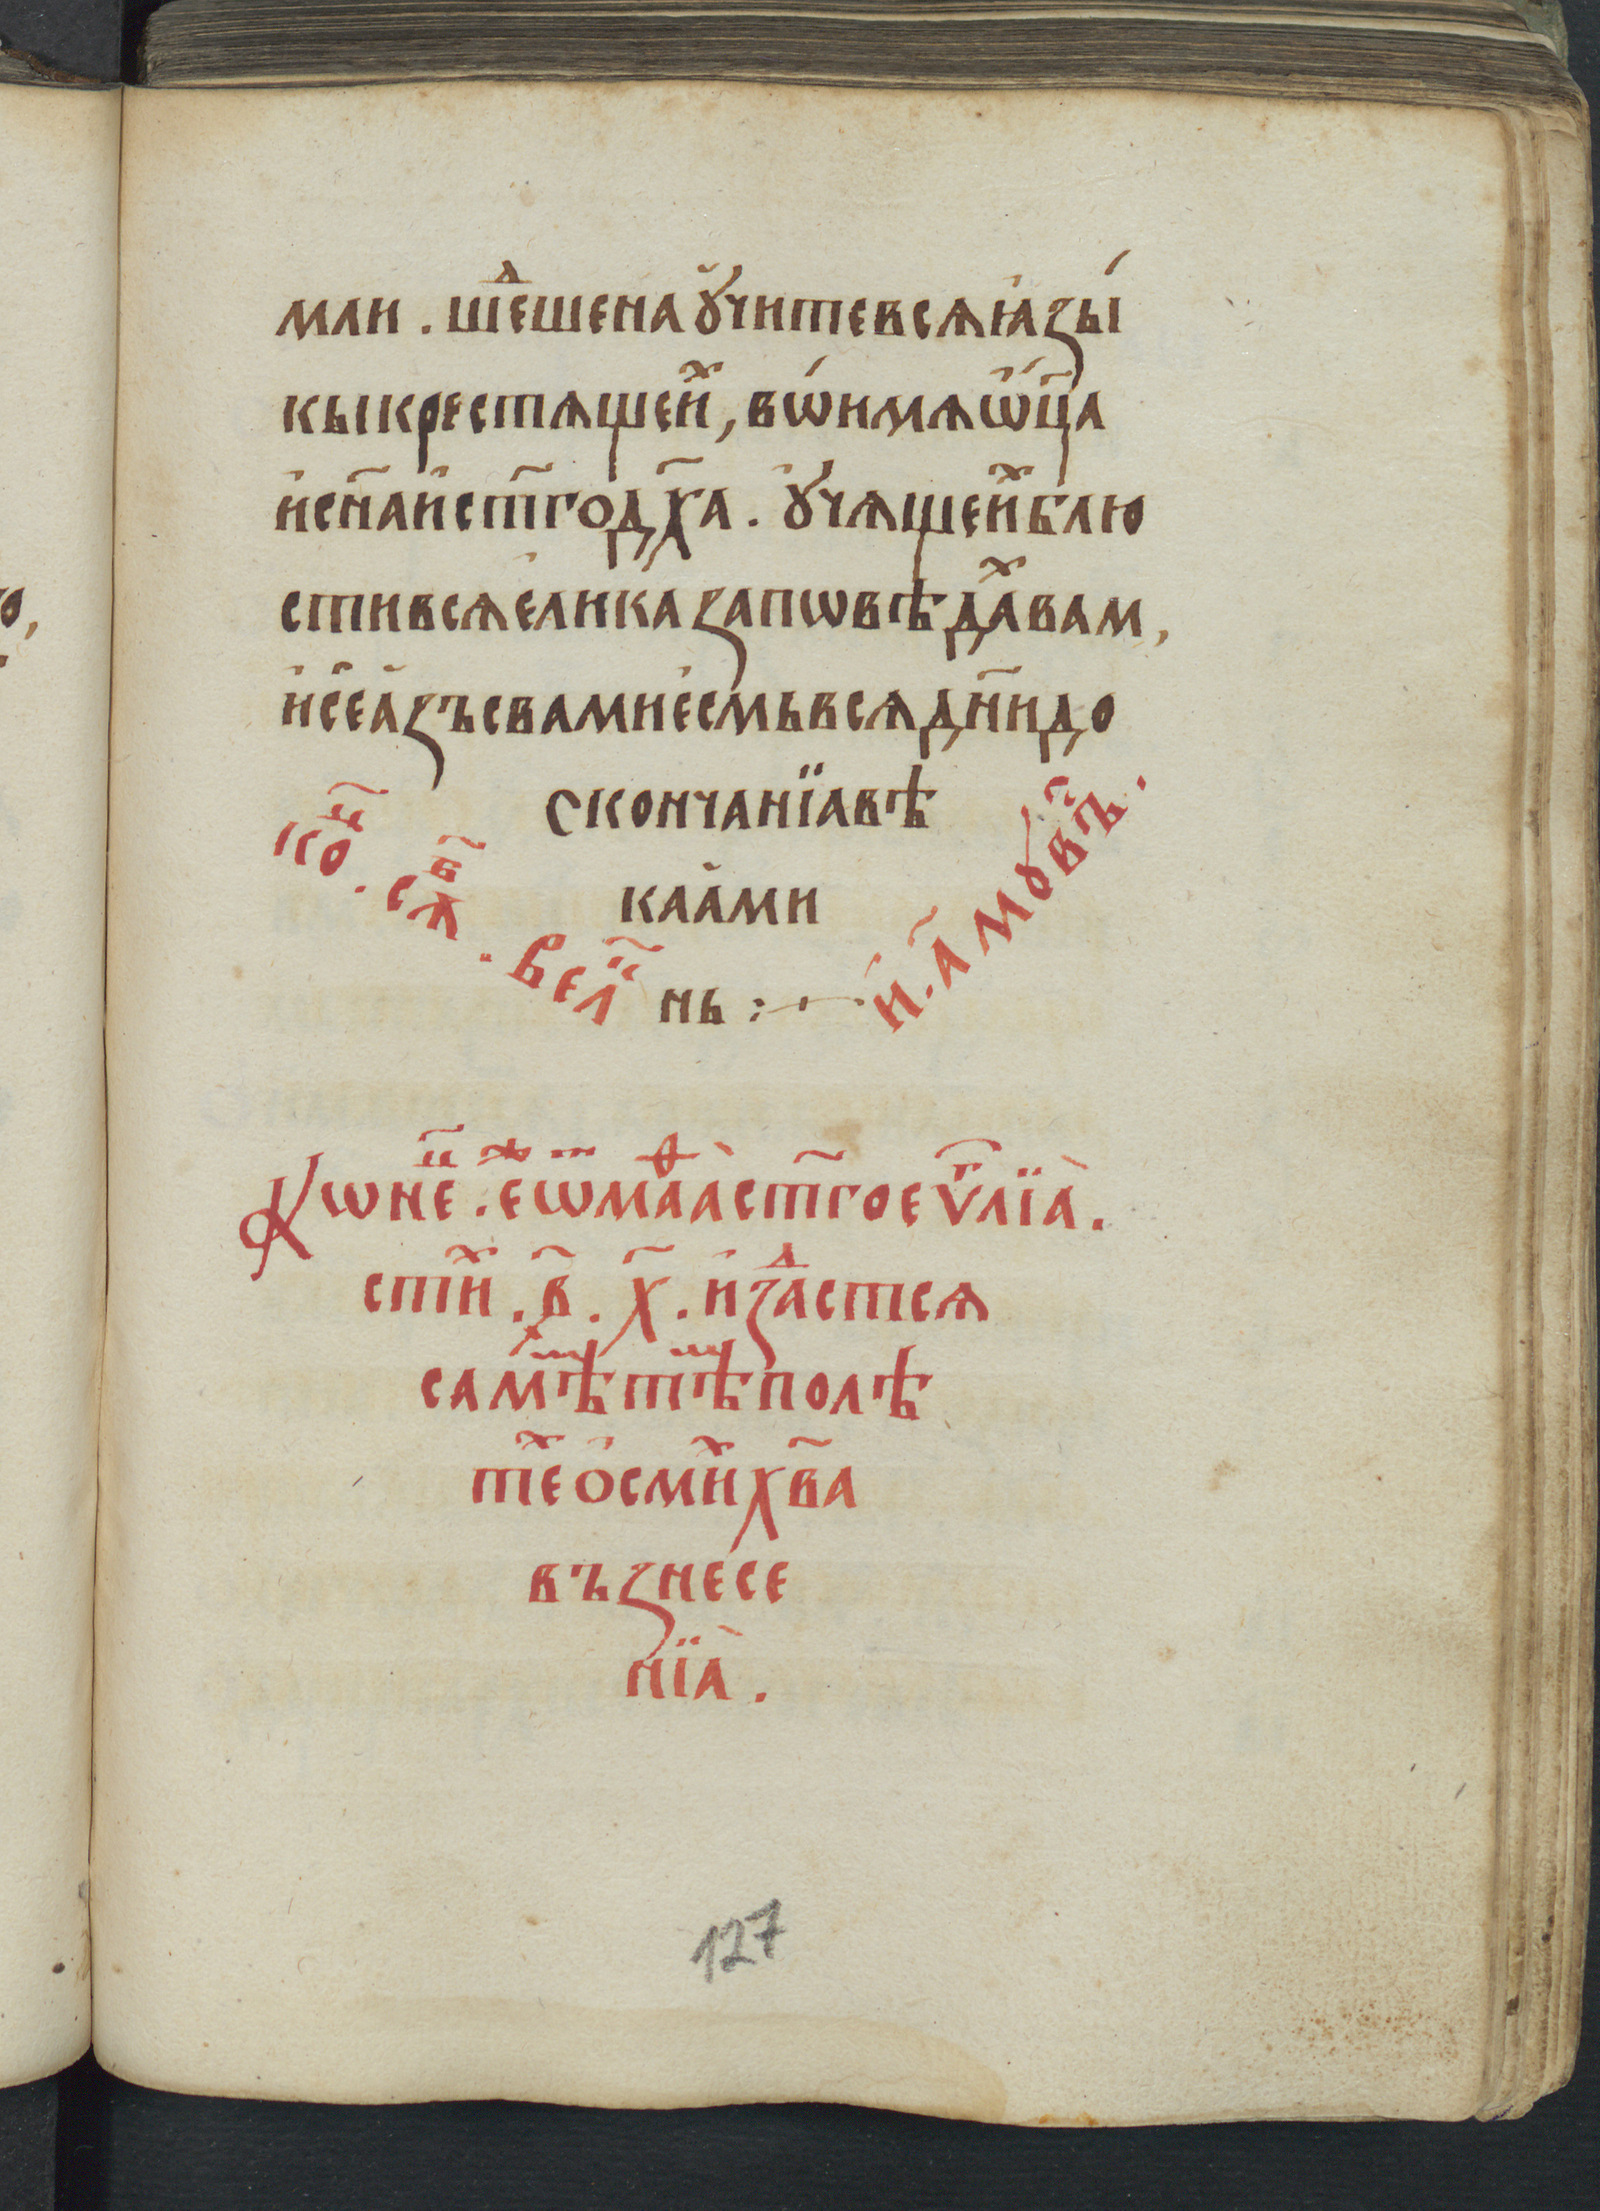 мли . шеⷣше наꙋчите всѧ ꙗ҆зы́
кы крестѧще и҆ⷯ, вѡ́ имѧ ѡ҆́ц҃а
и҆ сн҃а и҆ ст҃го дх҃а . ᲂу҆чѧще и҆ⷯ блю
сти всѧ е҆лика запѡвѣдаⷯ вам ,
и҆ се҃ а҆зъ с вами е҆смь всѧ дн҃и до
скончанїа вѣ
ка а҆ми
нь :
коⷰ҇ . сѧⷡ҇ . велⷤ
н҃ . а҃ мѡвъ .
Кѡнеⷰ҇ . еⷤ ѡⷮ маⷴа ст҃го еѵⷢ҇лїа̀ .
стиⷯ . в҃ . х҃ . и҆ заⷣстсѧ
самѣⷨ тѣⷨ полѣ
теⷯ о҆смиⷯ хв҃а
възнесе
нїа̀ .
127